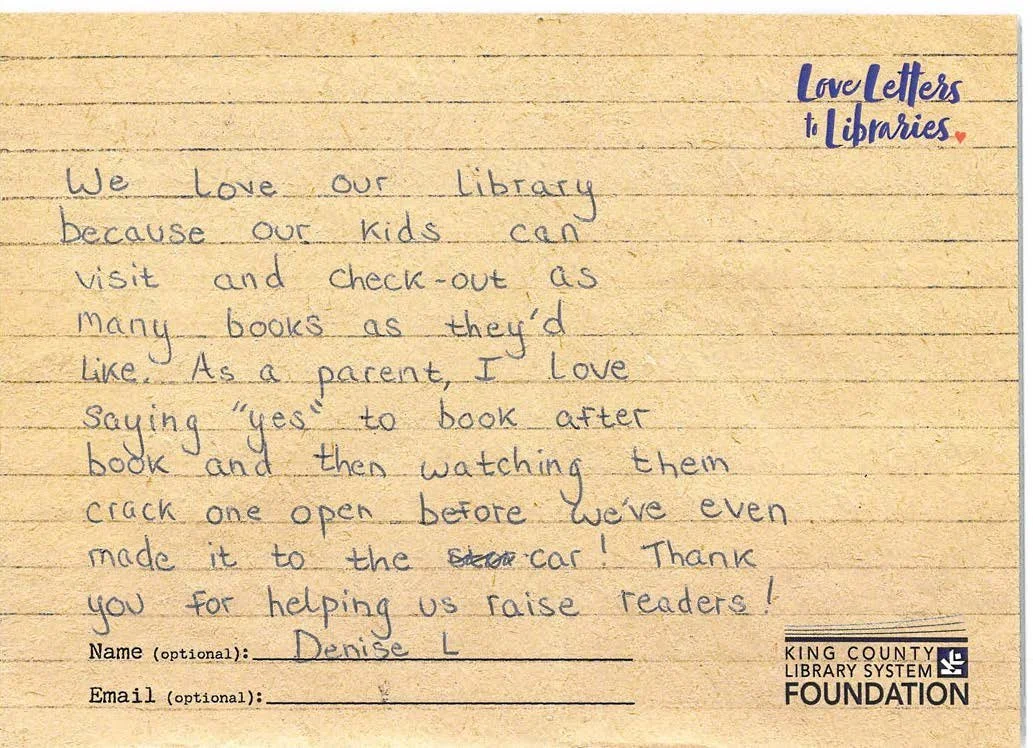 Love Letters
to Libraries
We Love our Library
because our kids can
visit and check-out as
many books as they'd
Like. As a parent, I Love
saying "yes" to book after
book and then watching them
crack one open before we've even
made it to the car! Thank
you for helping us raise readers!
Name (optional): Denise L
Email (optional):
KING COUNTY
LIBRARY SYSTEM
FOUNDATION